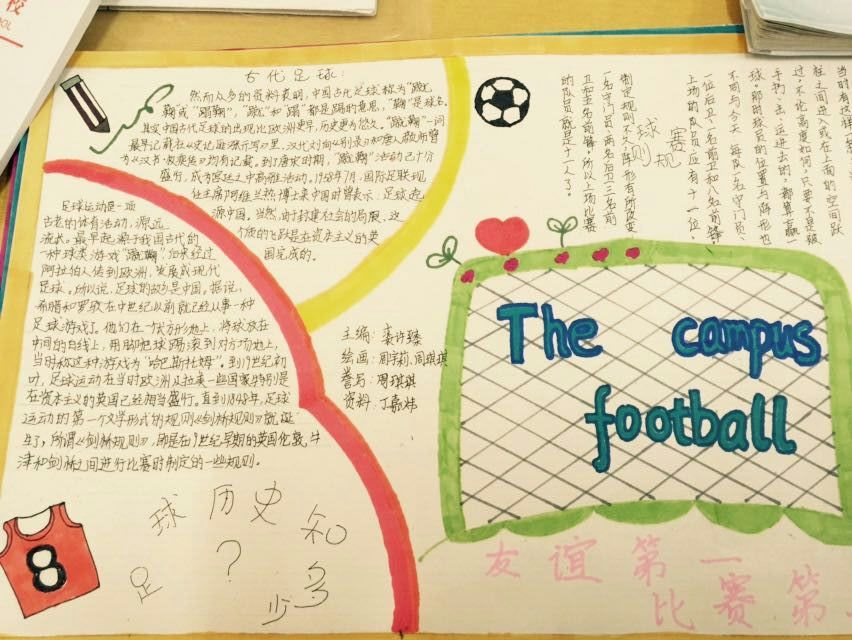 古代足球:
然而众多的资料表明,中国古代足球称为“蹴
鞠”或“蹋鞠”,“蹴”和“蹋”都是踢的意思,“鞠”是球名。
“蹴鞠”一词
最早记载在《史记·苏秦列传》里,汉代刘向《别录》和唐人颜师曾
为《汉书·枚乘传》均有记载。到了唐宋时期,“蹴鞠”活动已十分
盛行,成为宫廷之中高雅活动。1958年7月,国际足联现
任主席阿维兰热博士来中国时曾表示:足球起
源中国。当然,由于封建社会的局限,这
的飞跃是在资本主义的英
国完成的。
足球运动是一项
古老的体育活动,源远
流长。最早起源于我国古代的
一种球类游戏“蹴鞠”后来经过
阿拉伯人传到欧洲,发展成现代
足球。所以说,足球的故乡是中国。据说,
希腊和罗马在中世纪以前就已经从事一种
足球游戏了。他们在一个长方形地上,将球放在
中间的白线上,用脚把球踢滚到对方场地上,
当时称这种游戏为“哈巴斯托姆”。到19世纪初
叶,足球运动在当时欧洲及拉美一些国家特别是
在资本主义的英国已经相当盛行。直到1848年,足球
运动的第一个文字形式的规则《剑桥规则》就诞
生了,所谓《剑桥规则》,即是在19世纪早期的英国伦敦,牛
津和剑桥之间进行比赛时制定的一些规则。
足球历史知多少?
主编:袁许臻
绘画:周宇莉、周琪琪
誊写:周琪琪
资料:丁嘉炜
球赛规则
当时有这样
柱之间进入或在上面的空间跃
过,不论高度如何,只要不是被
手扔、击、运进去的,都算赢一
球。那时球员的位置与阵形也
不同与今天,每队一名守门员、
一位后卫一名前卫和八名前锋,
上场的队员应有十一位,
制定规则不久阵形有所改变
一名守门员两名后卫三名前
卫和五名前锋,所以上场比赛
的队员就是十一人了。
The campus
football
友谊第一
比赛第
8